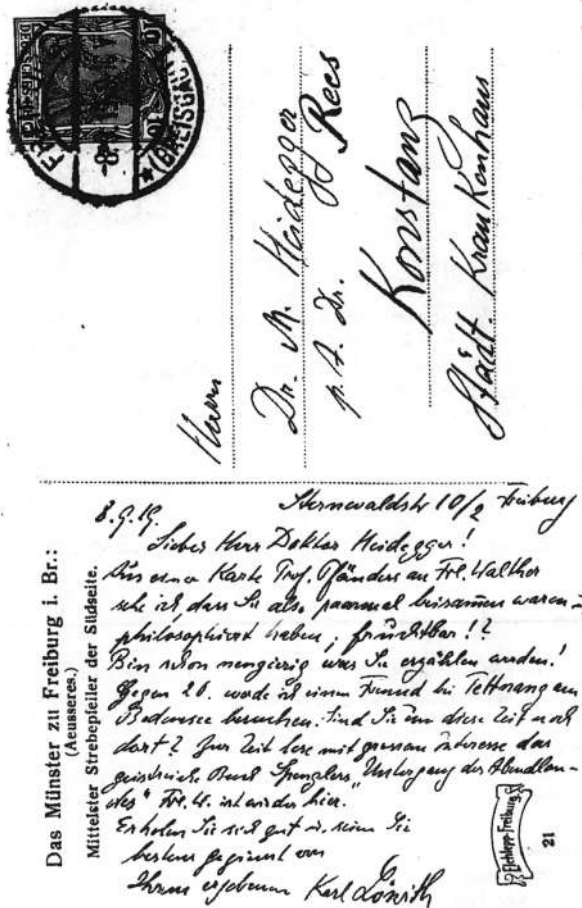 (BREISGAU)
Herrn
Dr. M. Heidegger
p. A. Dr. Rees
Konstanz
Städt. Krankenhaus
Das Münster zu Freiburg i. Br.:
(Aeusseres.)
Mittelster Strebepfeiler der Südseite.
8.9.19. Sternwaldstr 10/2 Freiburg
Lieber Herr Doktor Heidegger!
Aus einer Karte Prof. Pfänders an Frl. Walther
sehe ich, dass Sie also paarmal beisamen waren –
philosophiert haben; fruchtbar!?
Bin schon neugierig was Sie erzählen werden!
Gegen 20. werde ich einen Freund bei Tettnang am
Bodensee besuchen. Sind Sie um diese Zeit noch
dort? Zur Zeit lese mit grossem Interesse das
geistreiche Buch Spenglers "Untergang des Abendlan-
des" Frl. W. ist wieder hier.
Erholen Sie sich gut u. seien Sie
bestens gegrüsst von
Ihrem ergebenen Karl Löwith
21